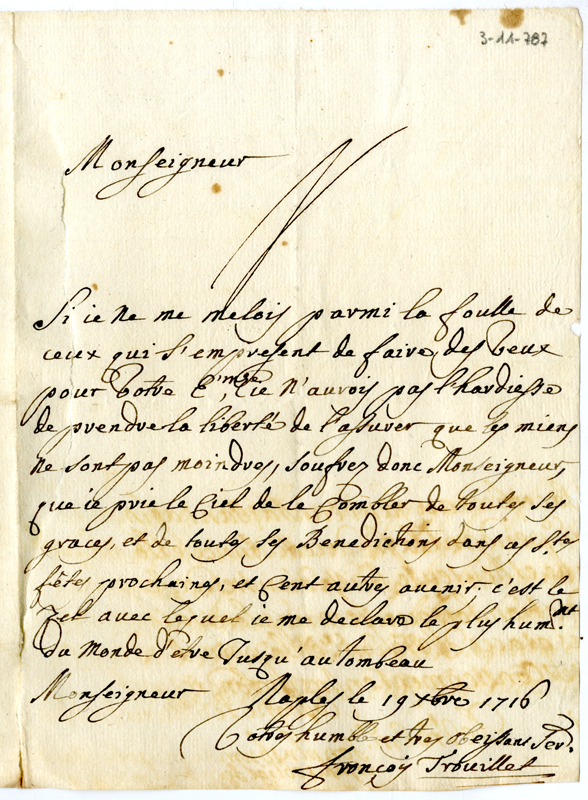 3-11-787
Monseigneur
Si ie ne me melois parmi la foulle de
ceux qui s'empresent de faire des veux
pour votre E.mce, ie n'aurois pas l'hardiesse
de prendre la liberté de l'assurer que les miens
ne sont pas moindres, soufrez donc Monseigneur,
que ie prie le Ciel de le Combler de toutes ses
graces, et de toutes ses Benedictions dans ces S.tes
fêtes prochaines, et Cent autres auenir; c'est le
Zel auec lequel ie me declare le plus hum.mt
du Monde d'être Jusqu'au tombeau
Monseigneur Naples le 19 xbre 1716
votre humble et tres obeissant Ser.
françois Trouillet